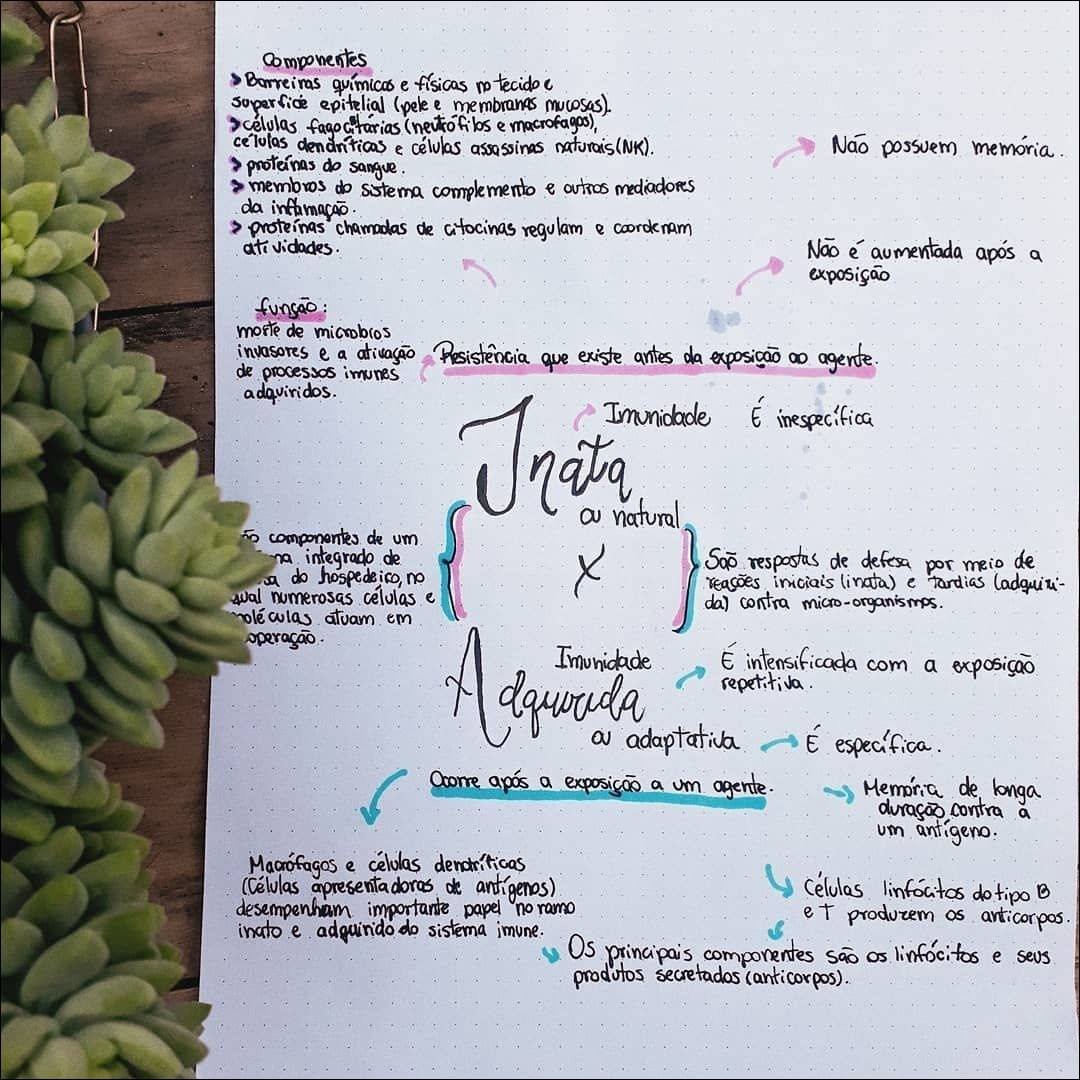 Componentes
> Barreiras químicas e físicas no tecido e
superfície epitelial (pele e membranas mucosas).
> células fagocitárias (neutrófilos e macrofagos),
células dendríticas e células assassinas naturais (NK).
> proteínas do sangue.
> membros do sistema complemento e outros mediadores
da inflamação.
> proteínas chamadas de citocinas regulam e coordenam
atividades.
Não possuem memória.
Não é aumentada após a
exposição
função:
morte de microbios
invasores e a ativação
de processos imunes
adquiridos.
Resistência que existe antes da exposição ao agente.
Imunidade É inespecífica
Inata
ou natural
X
componentes de um
integrado de
do hospedeiro, no
qual numerosas células e
moléculas atuam em
cooperação.
São respostas de defesa por meio de
reações iniciais (inata) e tardias (adquiri-
da) contra micro-organismos.
Imunidade
Adquirida
ou adaptativa
É intensificada com a exposição
repetitiva.
É específica.
Ocorre após a exposição a um agente.
Memória de longa
duração contra a
um antígeno.
Macrófagos e células dendríticas
(Células apresentadoras de antígenos)
desempenham importante papel no ramo
inato e adquirido do sistema imune.
Células linfócitos do tipo B
e T produzem os anticorpos.
Os principais componentes são os linfócitos e seus
produtos secretados (anticorpos).